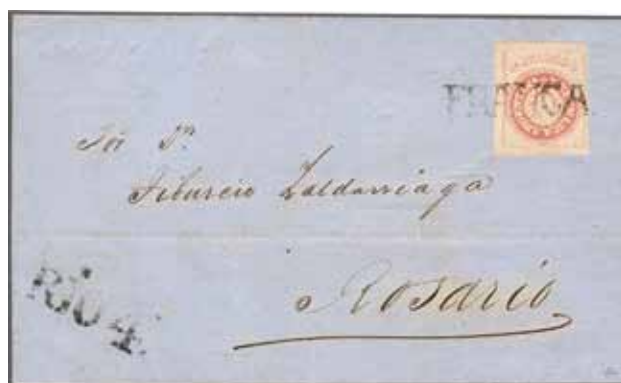 FRANCA
Sor Dn
Tiburcio Zaldarriaga
Rosario
RIO 4º